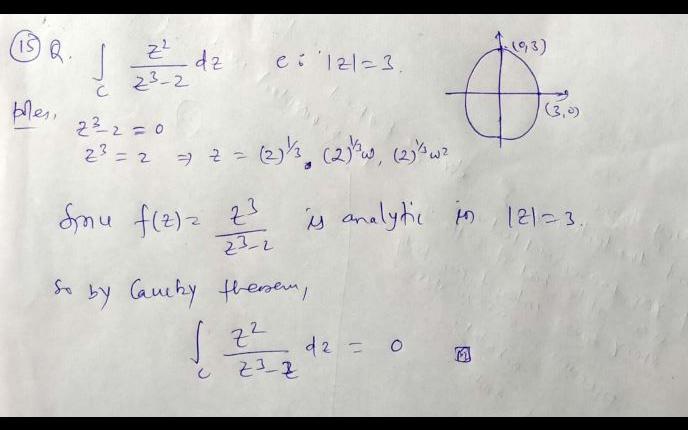 (15) Q. ∫_C z²/(z³-2) dz   c : |z|=3.
(0,3)
(3,0)
z³-2 = 0
z³ = 2 ⇒ z = (2)^{1/3}, (2)^{1/3}ω, (2)^{1/3}ω²
f(z) = z³/(z³-2) is analytic in |z|=3.
So by Cauchy theorem,
∫_C z²/(z³-2) dz = 0